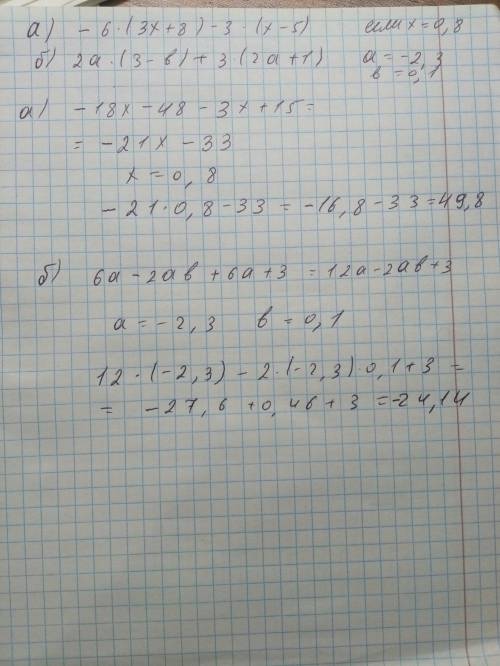 а) - 6 · (3x + 8) - 3 · (x - 5) если x = 0,8
б) 2a · (3 - в) + 3 · (2a + 1) a = -2,3
в = 0,1
а) - 18x - 48 - 3x + 15 =
= - 21x - 33
x = 0,8
- 21 · 0,8 - 33 = -16,8 - 33 = 49,8
б) 6a - 2aв + 6a + 3 = 12a - 2aв + 3
a = -2,3 в = 0,1
12 · (-2,3) - 2 · (-2,3) · 0,1 + 3 =
= - 27,6 + 0,46 + 3 = -24,14